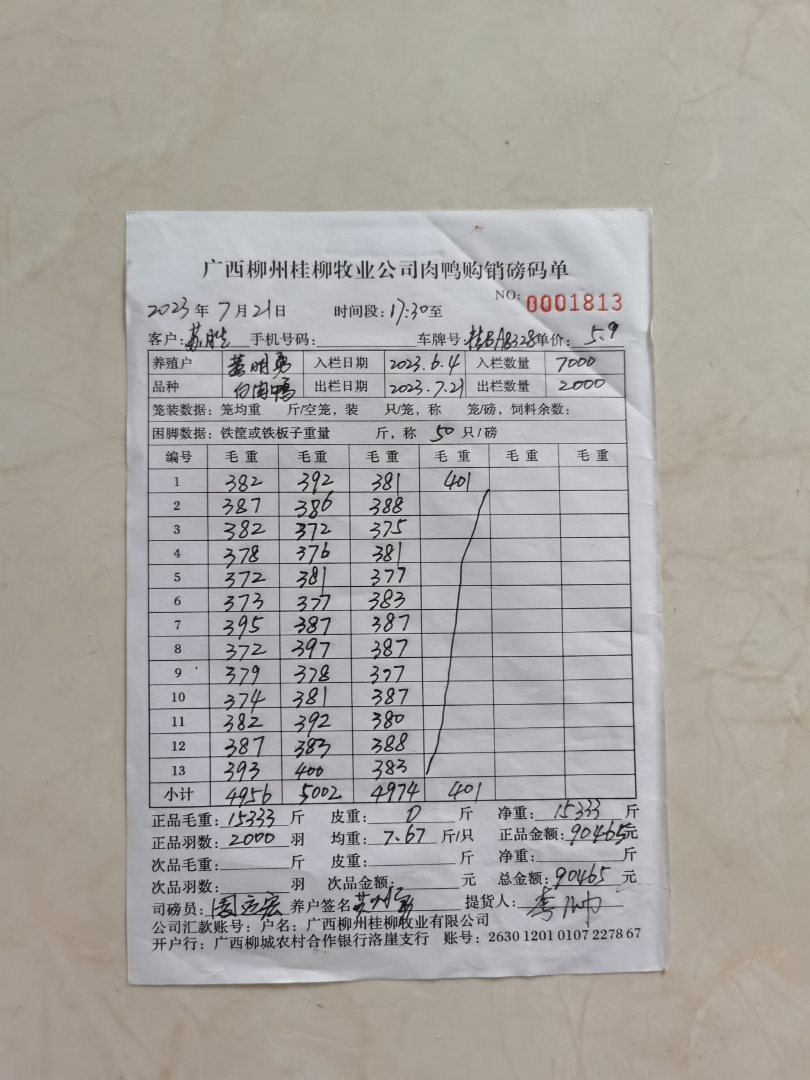 广西柳州桂柳牧业公司肉鸭购销磅码单
NO: 0001813
2023年 7月21日 时间段: 17:30至
客户: 手机号码: 车牌号: 桂BA8328 单价: 5.9
养殖户 明勇 入栏日期 2023.6.4 入栏数量 7000
品种 白肉鸭 出栏日期 2023.7.21 出栏数量 2000
笼装数据: 笼均重 斤/空笼, 装 只/笼, 称 笼/磅, 饲料余数:
困脚数据: 铁筐或铁板子重量 斤, 称 50 只/磅
编号 毛重 毛重 毛重 毛重 毛重 毛重
1 382 392 381 401
2 387 386 388
3 382 372 375
4 378 376 381
5 372 381 377
6 373 377 383
7 395 387 387
8 372 397 387
9 379 378 377
10 374 381 387
11 382 392 380
12 387 383 388
13 393 400 383
小计 4956 5002 4974 401
正品毛重: 15333 斤 皮重: 0 斤 净重: 15333 斤
正品羽数: 2000 羽 均重: 7.67 斤/只 正品金额: 90465元
次品毛重: 斤 皮重: 斤 净重: 斤
次品羽数: 羽 次品金额: 元 总金额: 90465 元
司磅员: 养户签名 提货人:
公司汇款账号: 户名: 广西柳州桂柳牧业有限公司
开户行: 广西柳城农村合作银行洛崖支行 账号: 2630 1201 0107 2278 67